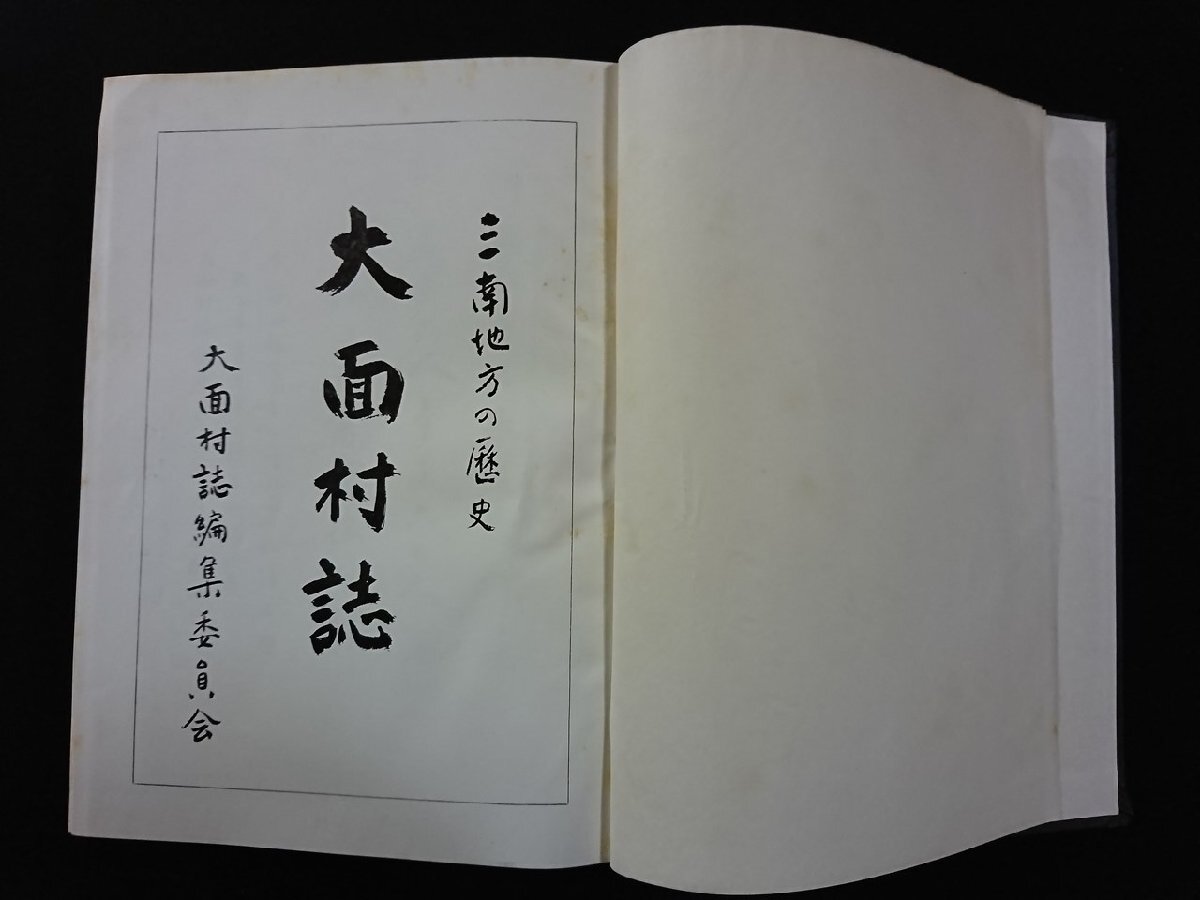 三南地方の歴史
大面村誌
大面村誌編集委員会